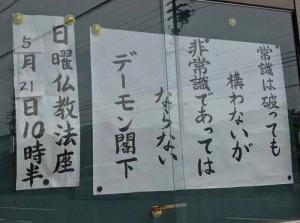 常識は破っても
構わないが
非常識であっては
ならない
デーモン閣下
日曜仏教法座
5月21日10時半。